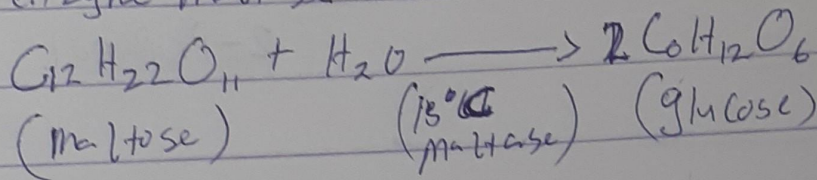 C12H22O11 + H2O ⟶ 2 C6H12O6
(maltose) (15°C maltase) (glucose)